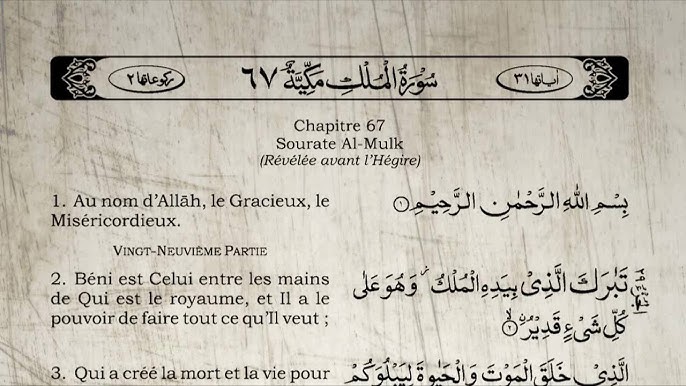 اٰیاتها ۳۱
سُوْرَةُ الْمُلْكِ مَكِّيَّةٌ ٦٧
رکوعاتها ۲
Chapitre 67
Sourate Al-Mulk
(Révélée avant l’Hégire)
1. Au nom d’Allāh, le Gracieux, le
Miséricordieux.
بِسْمِ اللّٰهِ الرَّحْمٰنِ الرَّحِيْمِ ۝۱
VINGT-NEUVIÈME PARTIE
2. Béni est Celui entre les mains
de Qui est le royaume, et Il a le
pouvoir de faire tout ce qu’Il veut ;
تَبٰرَكَ الَّذِيْ بِيَدِهِ الْمُلْكُ ۫ وَهُوَ عَلٰى
كُلِّ شَيْءٍ قَدِيْرُ ۝۲
3. Qui a créé la mort et la vie pour
الَّذِيْ خَلَقَ الْمَوْتَ وَالْحَيٰوةَ لِيَبْلُوَكُمْ